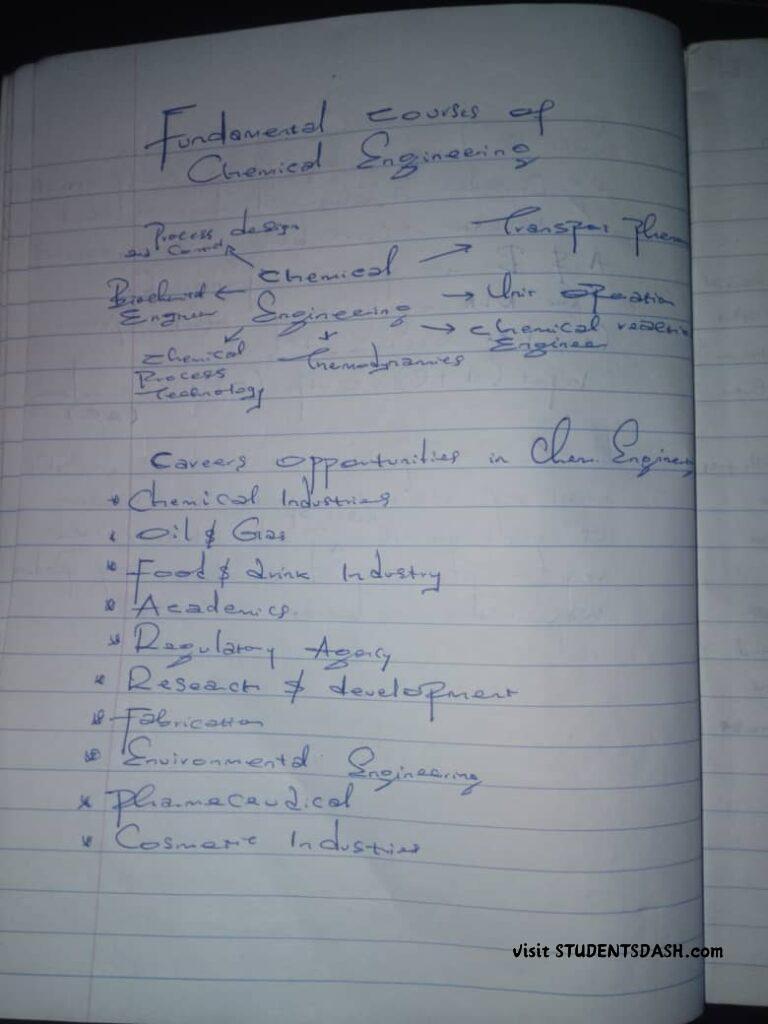 Fundamental courses of
Chemical Engineering
Process design
Transpor Phen
and Control
Chemical
Biochemical
Engineer
Engineering
Unit operation
Chemical reaction
Engineer
Chemical
Process
Technology
Themodynamics
Careers opportunities in Chem. Engineering
* Chemical Industries
* Oil & Gas
* Food & drink Industry
* Academics.
* Regulatory Agency
* Research & development
* Fabrication
* Environmental Engineering
* Phamaceudical
* Cosmetic Industries
visit STUDENTSDASH.com